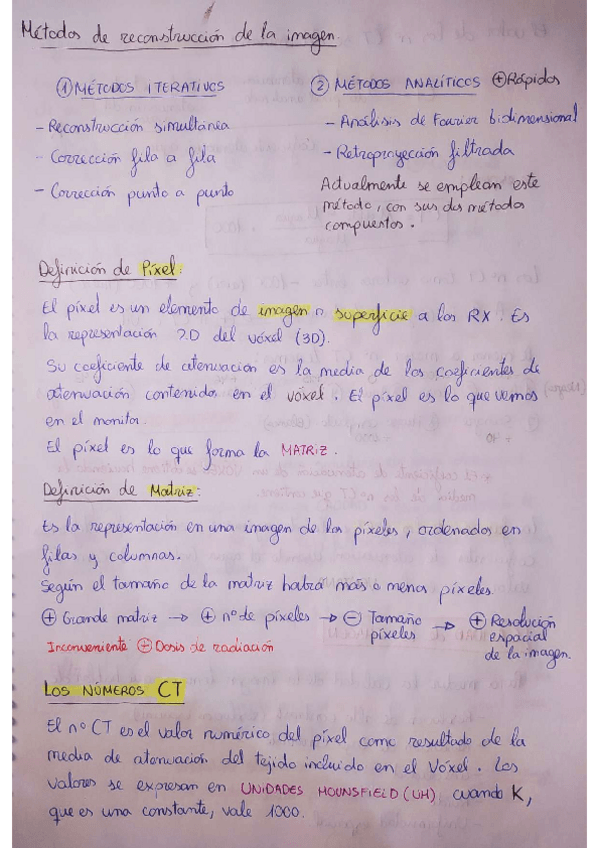 Métodos de reconstrucción de la imagen.
① MÉTODOS ITERATIVOS
- Reconstrucción simultánea
- Corrección fila a fila
- Corrección punto a punto
② MÉTODOS ANALÍTICOS ⊕ Rápidos
- Análisis de Fourier bidimensional
- Retroproyección filtrada
Actualmente se emplean este
método, con sus dos métodos
compuestos.
Definición de Píxel:
El píxel es un elemento de imagen o superficie a los RX. Es
la representación 2D del vóxel (3D).
Su coeficiente de atenuación es la media de los coeficientes de
atenuación contenidos en el vóxel. El píxel es lo que vemos
en el monitor.
El píxel es lo que forma la MATRIZ.
Definición de Matriz:
Es la representación en una imagen de los píxeles, ordenados en
filas y columnas.
Según el tamaño de la matriz habrá más o menos píxeles.
⊕ Grande matriz → ⊕ nº de píxeles → ⊖ Tamaño píxeles → ⊕ Resolución espacial de la imagen.
Inconveniente ⊕ Dosis de radiación
LOS NÚMEROS CT
El nº CT es el valor numérico del píxel como resultado de la
media de atenuación del tejido incluido en el Vóxel. Los
valores se expresan en UNIDADES HOUNSFIELD (UH) cuando K,
que es una constante, vale 1000.